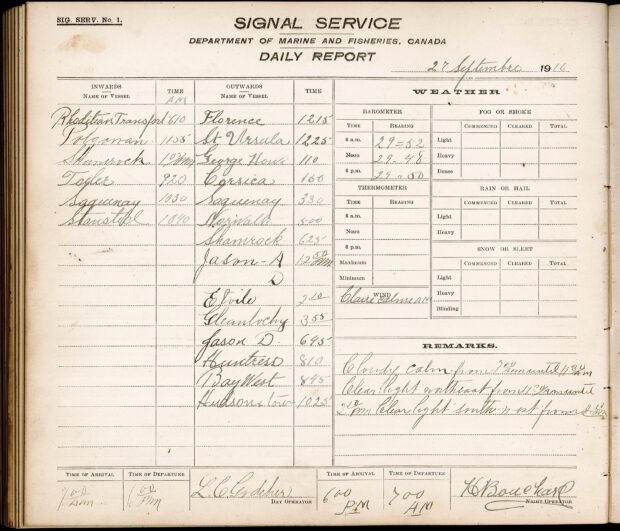 SIG. SERV. No. 1.
SIGNAL SERVICE
DEPARTMENT OF MARINE AND FISHERIES, CANADA
DAILY REPORT
27 September 1916
INWARDS
NAME OF VESSEL
TIME
AM
OUTWARDS
NAME OF VESSEL
TIME
Transport 610 Florence 1215
1155 St Ursula 1225
Shamrock George Howe 110
920 Corsica 160
Saguenay 1030 Saguenay 330
Norwalk 500
Shamrock 625
Jason - A
D
Etoile
355
Jason D. 645
Huntress 810
Bay West 845
1025
WEATHER
BAROMETER
TIME READING
6 a.m. 29=52
Noon 29-48
6 p.m. 29-50
THERMOMETER
TIME READING
6 a.m.
Noon
6 p.m.
Maximum
Minimum
WIND
FOG OR SMOKE
COMMENCED CLEARED TOTAL
Light
Heavy
Dense
RAIN OR HAIL
COMMENCED CLEARED TOTAL
Light
Heavy
SNOW OR SLEET
COMMENCED CLEARED TOTAL
Light
Heavy
Blinding
REMARKS.
Cloudy calm from until
Clear light from until
Clear light south from
TIME OF ARRIVAL
TIME OF DEPARTURE
DAY OPERATOR
TIME OF ARRIVAL
600 PM
TIME OF DEPARTURE
700 AM
H Bouchard
NIGHT OPERATOR